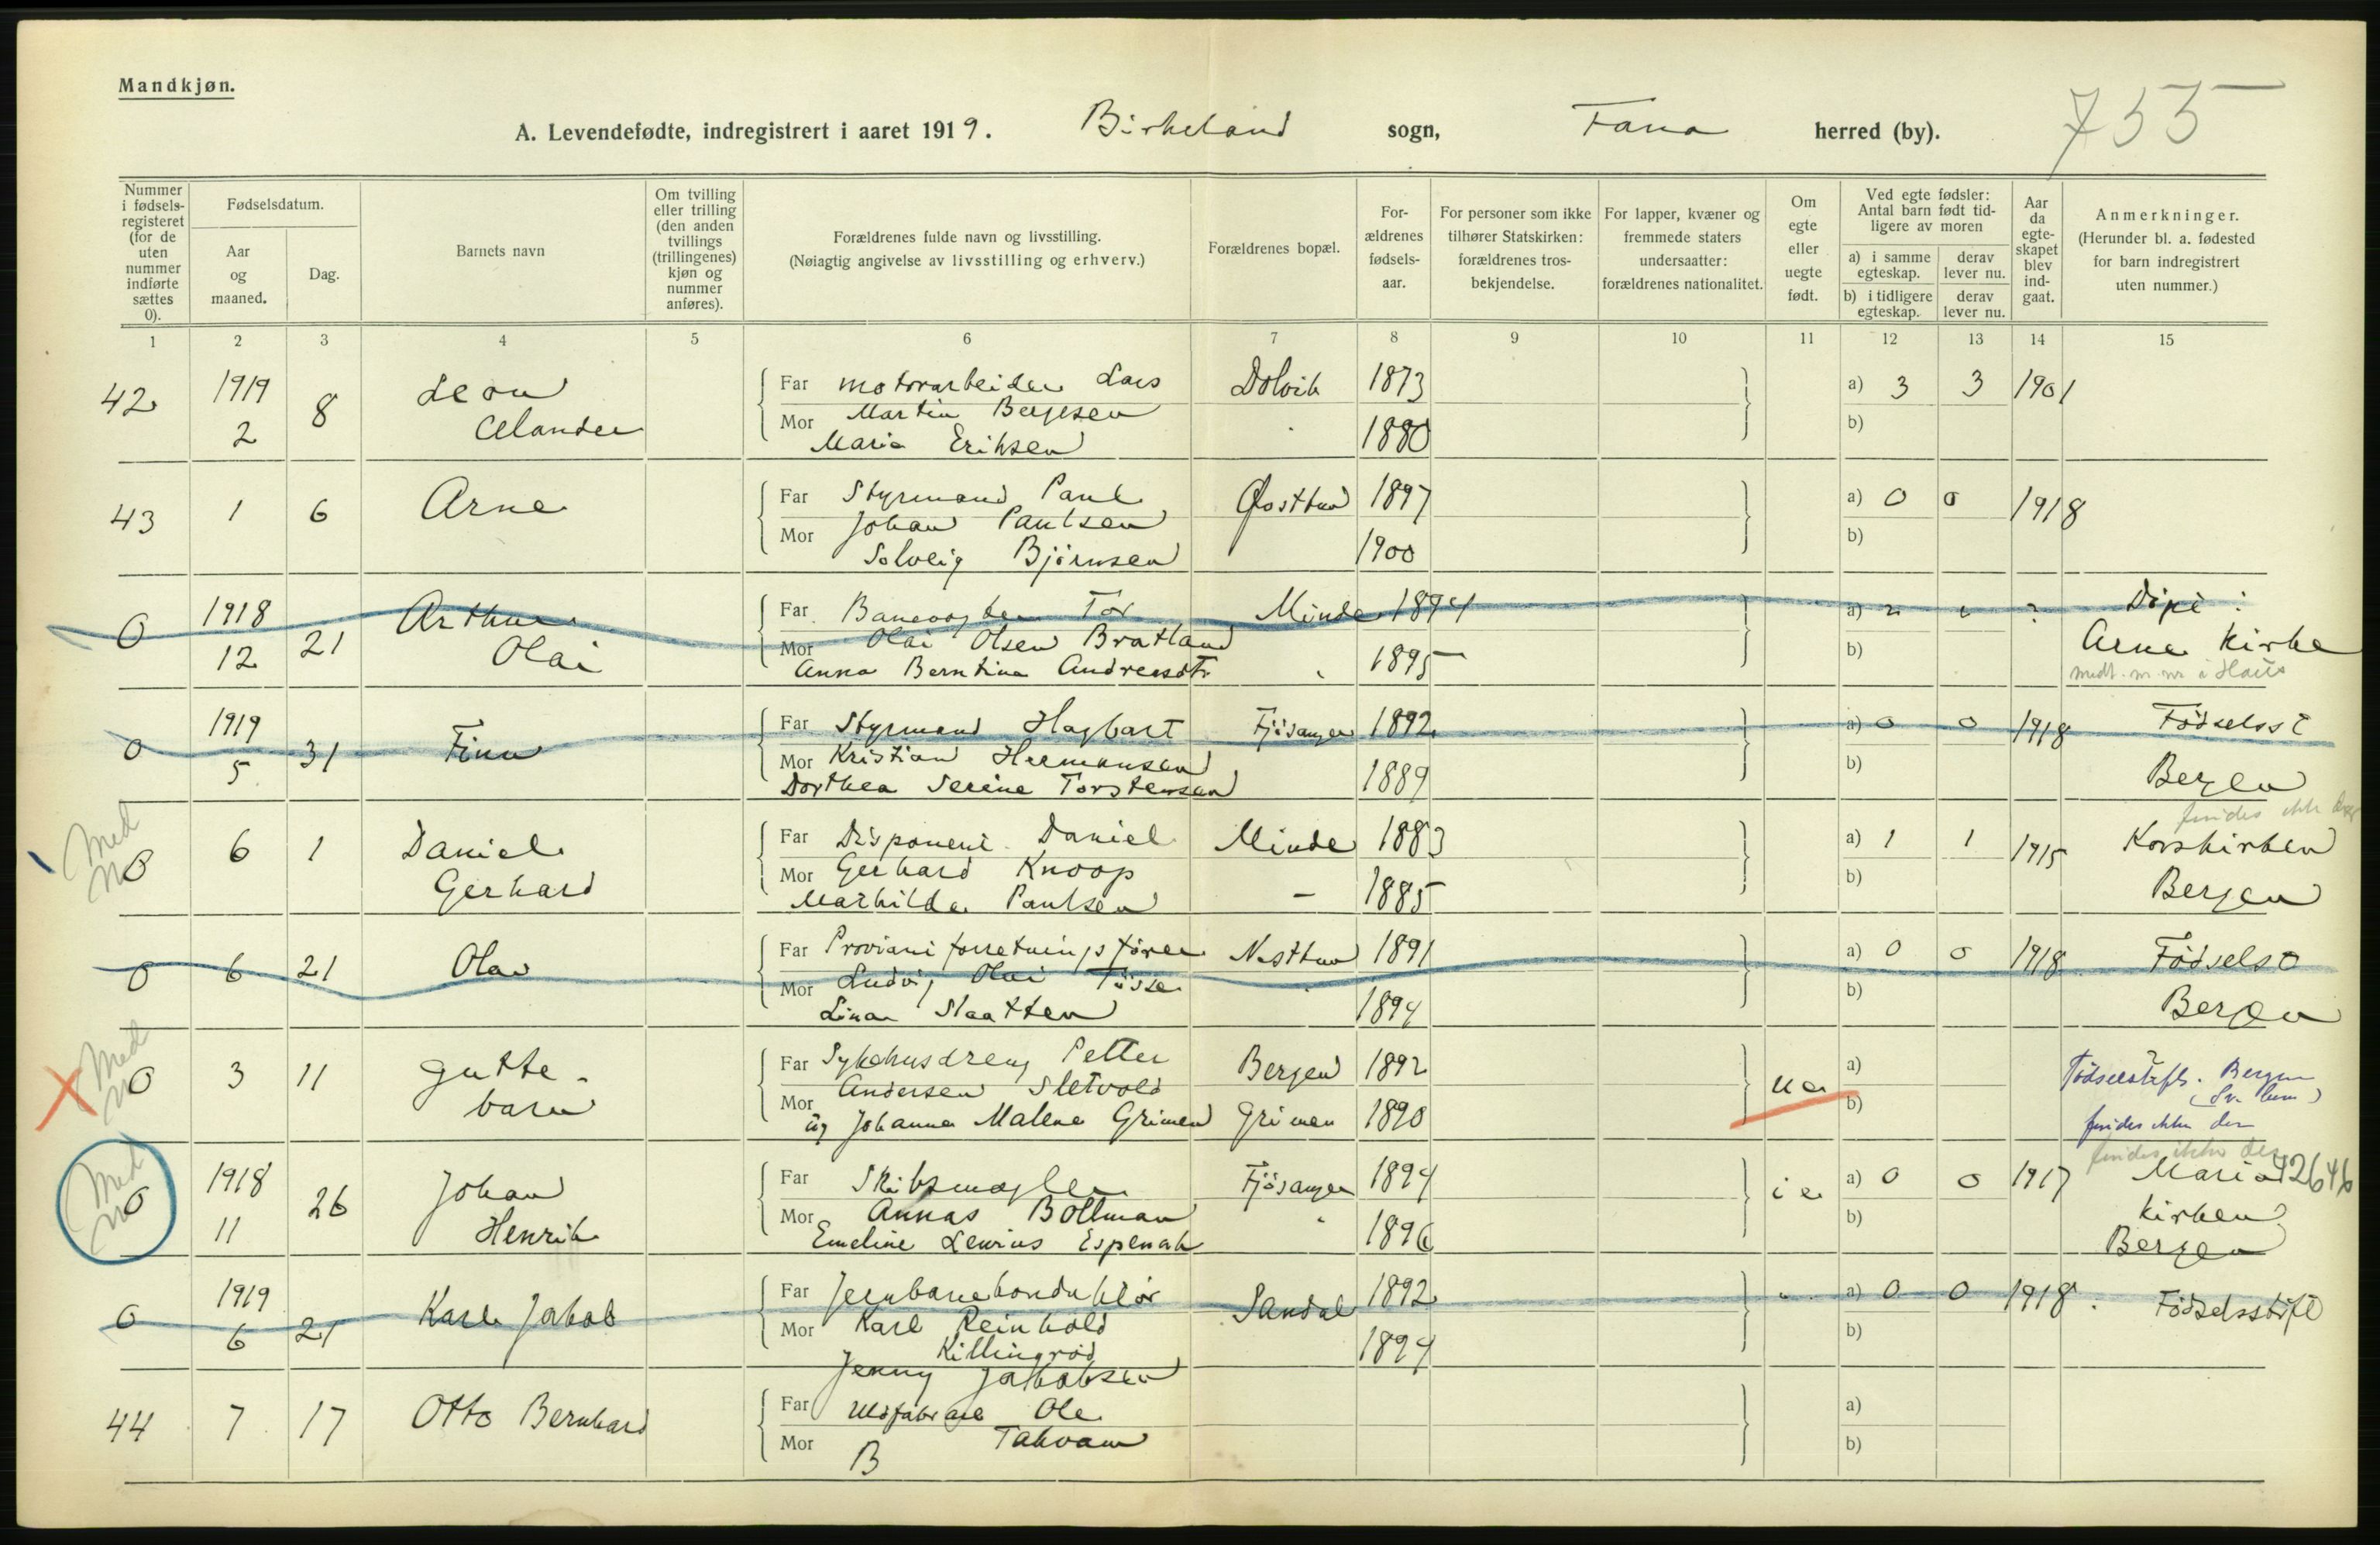 Mandkjøn.
A. Levendefødte, indregistrert i aaret 1919. Birkeland sogn, Fana herred (by). 755
Nummer i fødsels-registeret (for de uten nummer indførte sættes 0).
Fødselsdatum.
Aar og maaned.
Dag.
Barnets navn
Om tvilling eller trilling (den anden tvillings (trillingenes) kjøn og nummer anføres).
Forældrenes fulde navn og livsstilling.
(Nøiagtig angivelse av livsstilling og erhverv.)
Forældrenes bopæl.
For-ældrenes fødsels-aar.
For personer som ikke tilhører Statskirken: forældrenes tros-bekjendelse.
For lapper, kvæner og fremmede staters undersaatter: forældrenes nationalitet.
Om egte eller uegte født.
Ved egte fødsler: Antal barn født tid-ligere av moren
a) i samme egteskap.
derav lever nu.
b) i tidligere egteskap.
derav lever nu.
Aar da egte-skapet blev ind-gaat.
Anmerkninger.
(Herunder bl. a. fødested for barn indregistrert uten nummer.)
1 2 3 4 5 6 7 8 9 10 11 12 13 14 15
42 1919 2 8 Leon
Far motorarbeider Lars Dolvik 1873 a) 3 3 1901
Mor Martin Bergesen
Maria Eriksen 1880 b)
43 1 6 Arne
Far Styrmand Paul 1897 a) 0 0 1918
Mor Johan Paulsen
Solveig Bjørnsen 1900 b)
0 1918 12 21 Arthur Olai
Far Tor Minde 1894 a) Døpt i
Mor Olai Olsen Bratland Arne Kirke
Anna Berntina 1895 b)
0 1919 5 31 Finn
Far Styrmand Hagbart Fjøsanger 1892 a) 0 0 1918 Fødselsst
Mor Kristian Hermansen
Dorthea Serine Torstensen 1889 b) Bergen
findes ikke der
Med no
0 6 1 Daniel Gerhard
Far Disponent Daniel Minde 1883 a) 1 1 1915 Korskirken
Mor Gerhard Knoop
Mathilde Paulsen - 1885 b) Bergen
0 6 21 Olav
Far Proviantforretningsfører Nesttun 1891 a) 0 0 1918 Fødsels
Mor Ludvig Olai Tøsse
Lina Slaatten 1894 b) Bergen
Med no
0 3 11 Gutte-barn
Far Sykehusdreng Petter Bergen 1892 ue a) Fødselsstift. Bergen
Mor Andersen Sletvold
ug Johanna Malene Grimen Grimen 1890 b) findes ikke der
findes ikke der
Med no
0 1918 11 26 Johan Henrik
Far Skibsmægler Fjøsanger 1894 a) 0 0 1917 Maria
Mor Annas Bottman Kirken
Emeline Espenak 1896 b) Bergen
0 1919 6 21 Karl Jakob
Far Jernbanekonduktør Sandal 1892 a) 0 0 1918 Fødselsstift
Mor Karl Reinhold
Killingrød
Jenny Jakobsen 1894 b)
44 7 17 Otto Bernhard
Far Ole a)
Mor Takvam
B b)